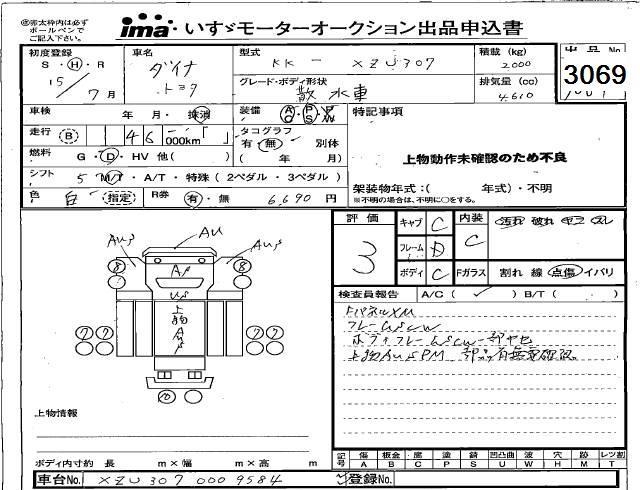 ㊟赤太枠内は必ず
ボールペンで
ご記入下さい。
ima いすゞモーターオークション出品申込書
初度登録 車名 型式 KK - XZU307 積載 (kg) 2000 出品No.
S・H・R 15/7月 ダイナ トヨタ グレード・ボディ形状 散水車 排気量 (cc) 4610 3069
車検 年 月・抹消 装備 AC PS PW 特記事項
走行 B 46 000km「 」 タコグラフ 有・無 別体
燃料 G・D・HV 他( ) ( 年 月) 上物動作未確認のため不良
シフト 5 M/T・A/T・特殊(2ペダル・3ペダル) 架装物年式:( 年式)・不明
色 白 指定 R券 有・無 6,690 円 ※不明の場合は、不明に○をする。
評価 キャブ C 内装 汚れ 破れ ヤニ スレ
3 フレーム D C
ボディ C Fガラス 割れ 線 点傷 イバリ
検査員報告 A/C( ✓ ) B/T( )
AU
AUS AUS
8 8
AS
US
上物AUS
7 7 7 7
10
フレームSCW
ボディフレームSCW一部ヤセ
上物情報
ボディ内寸約 長 m×幅 m×高 m
記号 傷A 板金B 腐C 塗P 錆S 凹凸曲U 波W 穴H 跡M レツ割T
車台No. XZU307 0009584 登録No.